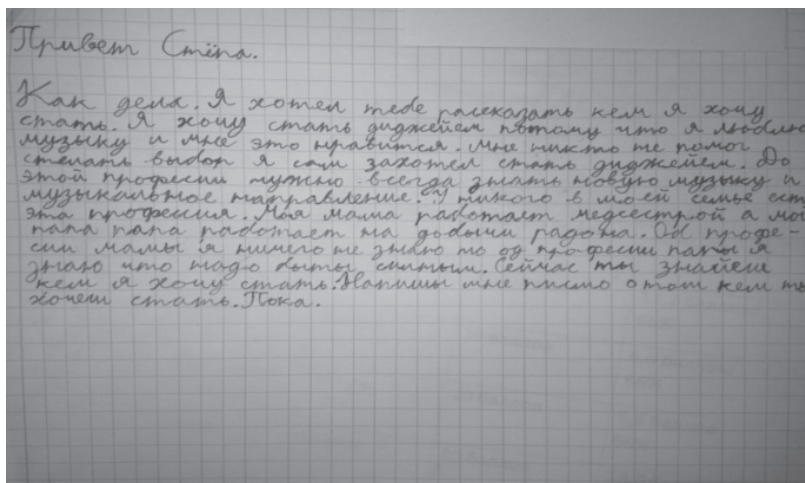 Привет Стёпа.
Как дела. Я хотел тебе рассказать кем я хочу
стать. Я хочу стать диджейем потому что я люблю
музыку и мне это нравится. Мне никто не помог
стелать выбор я сам захотел стать диджейем. До
этой професии нужно всегда знать новую музыку и
музыкальное направление. У никого в моей семье ест
эта професия. Моя мама работает медсестрой а мой
папа папа работает на добыши радона. Об професи-
сии мамы я ничего не знаю но од професии папы я
знаю что надо быты силным. Сейчас ты знайеш
кем я хочу стать. Напишы мне писмо о том кем ты
хочеш стать. Пока.